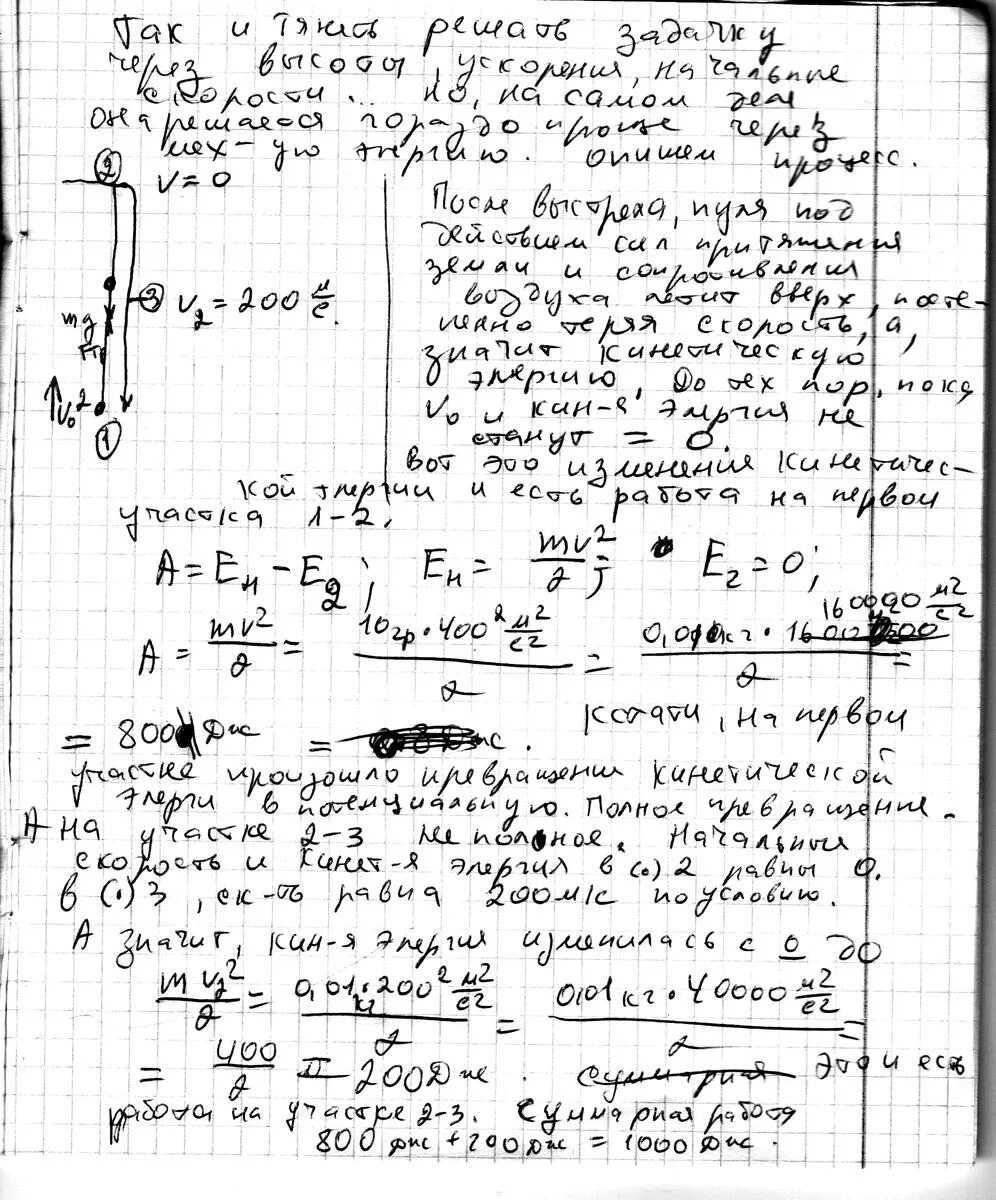 Так и тянет решать задачку
через высоты, ускорения, начальные
скорости... Но, на самом деле
она решается гораздо проще через
мех-ую энергию. Опишем процесс.
2
V = 0
3 V₂ = 200 м/с.
mg
V₀
1
После выстрела, пуля под
действием сил притяжения
земли и сопротивления
воздуха летит вверх, посте-
пенно теряя скорость, а,
значит кинетическую
энергию, До тех пор, пока
V₀ и кин-я энергия не
станут = 0.
Вот это изменения кинетичес-
кой энергии и есть работа на первом
участка 1-2.
A = Eн - E2; Eн = mv²/2; E₂ = 0;
A = mv²/2 = 10гр·400² м²/с² / 2 = 0,010кг·160000 м²/с² / 2 =
= 800 Дж = . Кстати, на первом
участке произошло превращении кинетической
энерги в потенциальную. Полное превращение.
А на участке 2-3 не полное. Начальный
скорость и кинет-я энергия в (·) 2 равны 0.
в (·) 3, ск-ть равна 200 м/с по условию.
А значит, кин-я энергия изменилась с 0 до
mv₂²/2 = 0,01кг·200² м²/с² / 2 = 0,01кг·40000 м²/с² / 2 =
= 400/2 = 200 Дж. Суммарная это и есть
работа на участке 2-3. Суммарная работа
800 Дж + 200 Дж = 1000 Дж.